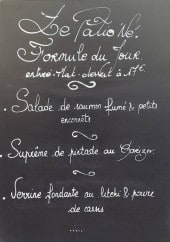 Le Patio'Né.
Formule du Jour
entrée-Plat-dessert à 17€.
. Salade de saumon fumé & petits
encornets
. Suprême de pintade au Chorizo.
. Verrine fondante au litchi & poivre
de cassis
.....